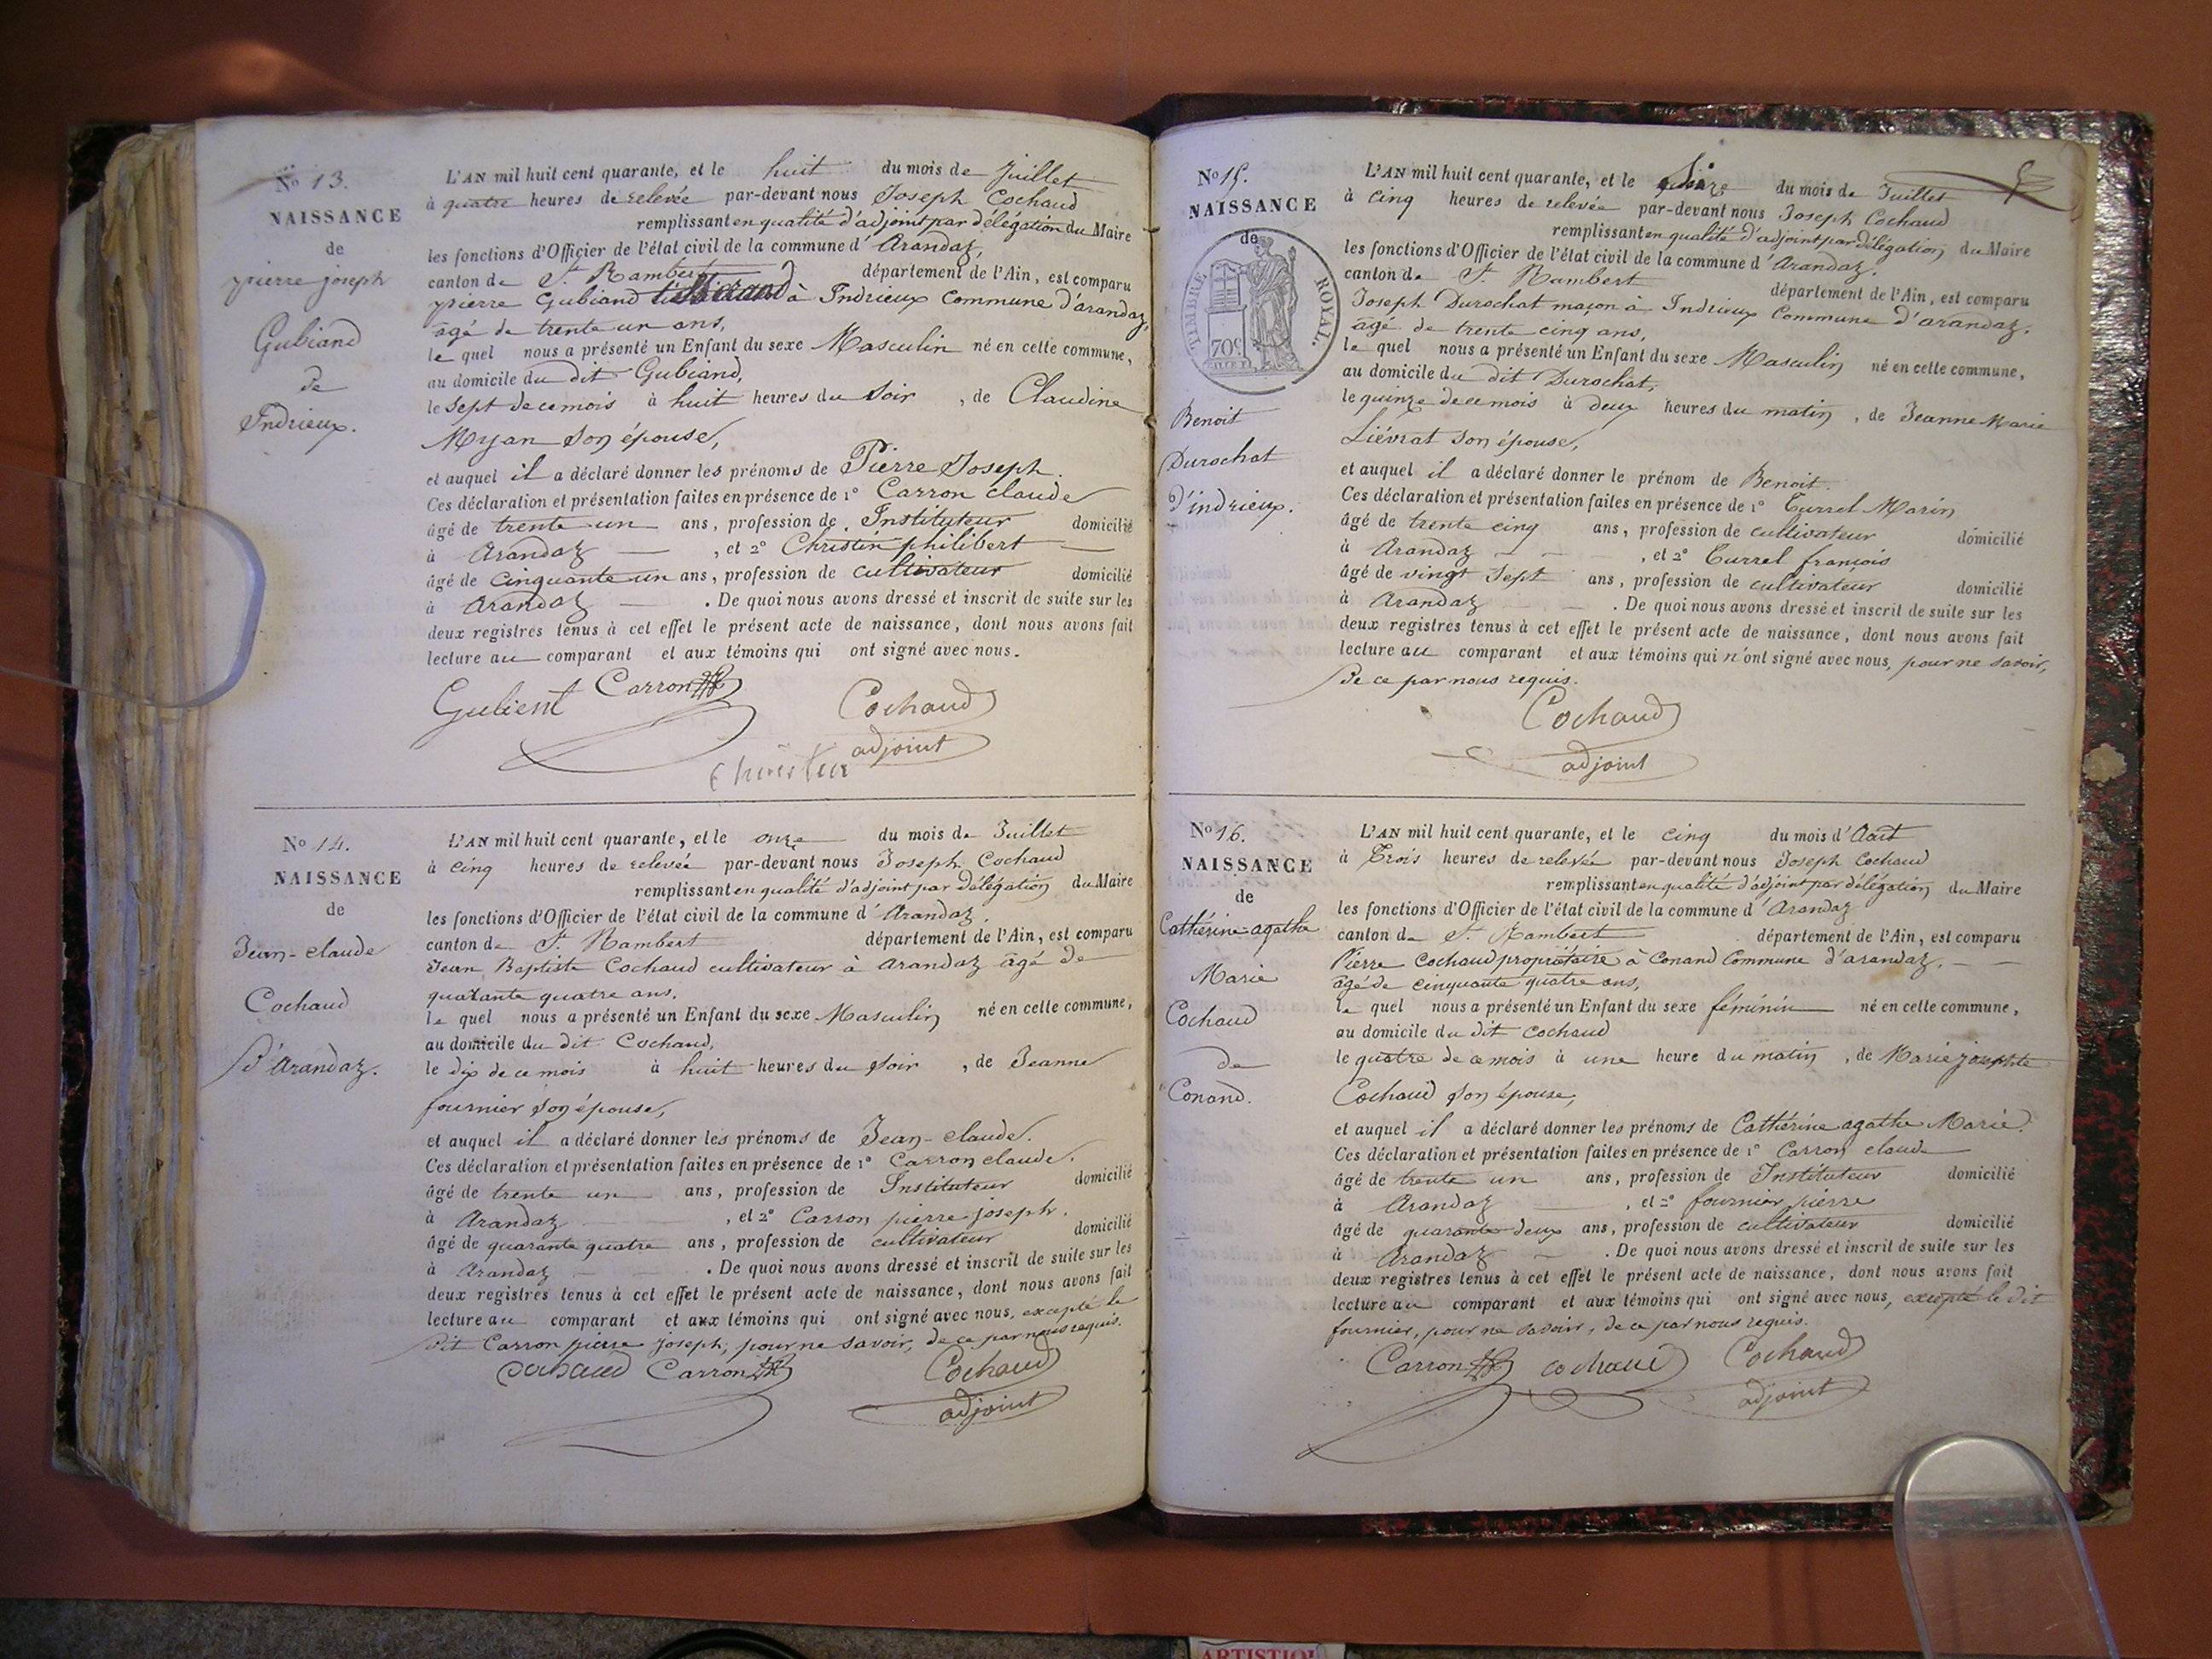 No 13.
NAISSANCE
de
pierre joseph
Gubiand
de
Indrieux.
L'AN mil huit cent quarante, et le huit du mois de Juillet
à quatre heures de relevée par-devant nous Joseph Cochaud
remplissant en qualité d'adjoint par délégation du Maire
les fonctions d'Officier de l'état civil de la commune d'Arandaz,
canton de St. Rambert département de l'Ain, est comparu
pierre Gubiand à Indrieux Commune d'arandaz,
âgé de trente un ans,
le quel nous a présenté un Enfant du sexe Masculin né en cette commune,
au domicile du dit Gubiand,
le sept de ce mois à huit heures du soir, de Claudine
Myan son épouse,
et auquel il a déclaré donner les prénoms de Pierre Joseph.
Ces déclaration et présentation faites en présence de 1° Carron claude
âgé de trente un ans, profession de Instituteur domicilié
à Arandaz, et 2° Christin philibert
âgé de cinquante un ans, profession de cultivateur domicilié
à Arandaz. De quoi nous avons dressé et inscrit de suite sur les
deux registres tenus à cet effet le présent acte de naissance, dont nous avons fait
lecture au comparant et aux témoins qui ont signé avec nous.
Gubient Carron Cochaud
adjoint
No 14.
NAISSANCE
de
Jean-claude
Cochaud
D'Arandaz.
L'AN mil huit cent quarante, et le onze du mois de Juillet
à cinq heures de relevée par-devant nous Joseph Cochaud
remplissant en qualité d'adjoint par délégation du Maire
les fonctions d'Officier de l'état civil de la commune d'Arandaz,
canton de St. Rambert département de l'Ain, est comparu
Jean Baptiste Cochaud cultivateur à Arandaz âgé de
quarante quatre ans.
le quel nous a présenté un Enfant du sexe Masculin né en cette commune,
au domicile du dit Cochaud,
le dix de ce mois à huit heures du soir, de Jeanne
fournier son épouse,
et auquel il a déclaré donner les prénoms de Jean-claude.
Ces déclaration et présentation faites en présence de 1° Carron claude.
âgé de trente un ans, profession de Instituteur domicilié
à Arandaz, et 2° Carron pierre joseph.
âgé de quarante quatre ans, profession de cultivateur domicilié
à Arandaz. De quoi nous avons dressé et inscrit de suite sur les
deux registres tenus à cet effet le présent acte de naissance, dont nous avons fait
lecture au comparant et aux témoins qui ont signé avec nous, excepté le
dit Carron pierre joseph, pour ne savoir, de ce par nous requis.
Cochaud Carron Cochaud
adjoint
No 15.
NAISSANCE
de
TIMBRE ROYAL.
70c
Benoit
Durochat
d'indrieux.
L'AN mil huit cent quarante, et le du mois de Juillet
à cinq heures de relevée par-devant nous Joseph Cochaud
remplissant en qualité d'adjoint par délégation du Maire
les fonctions d'Officier de l'état civil de la commune d'Arandaz.
canton de St. Rambert département de l'Ain, est comparu
Joseph Durochat maçon à Indrieux Commune d'arandaz.
âgé de trente cinq ans,
le quel nous a présenté un Enfant du sexe Masculin né en cette commune,
au domicile du dit Durochat,
le quinze de ce mois à deux heures du matin, de Jeanne Marie
Liévrat son épouse,
et auquel il a déclaré donner le prénom de Benoit.
Ces déclaration et présentation faites en présence de 1° Turrel Marin
âgé de trente cinq ans, profession de cultivateur domicilié
à Arandaz, et 2° Turrel francois
âgé de vingt sept ans, profession de cultivateur domicilié
à Arandaz. De quoi nous avons dressé et inscrit de suite sur les
deux registres tenus à cet effet le présent acte de naissance, dont nous avons fait
lecture au comparant et aux témoins qui n'ont signé avec nous, pour ne savoir,
de ce par nous requis.
Cochaud
adjoint
No 16.
NAISSANCE
de
Cathérine agathe
Marie
Cochaud
de
Conand.
L'AN mil huit cent quarante, et le cinq du mois d'Août
à Trois heures de relevée par-devant nous Joseph Cochaud
remplissant en qualité d'adjoint par délégation du Maire
les fonctions d'Officier de l'état civil de la commune d'Arandaz
canton de St. Rambert département de l'Ain, est comparu
Pierre Cochaud propriétaire à Conand Commune d'arandaz.
âgé de cinquante quatre ans,
le quel nous a présenté un Enfant du sexe féminin né en cette commune,
au domicile du dit Cochaud
le quatre de ce mois à une heure du matin, de Marie josephte
Cochaud son épouse,
et auquel il a déclaré donner les prénoms de Cathérine agathe Marie.
Ces déclaration et présentation faites en présence de 1° Carron claude
âgé de trente un ans, profession de Instituteur domicilié
à Arandaz, et 2° fournier pierre
âgé de quarante deux ans, profession de cultivateur domicilié
à Arandaz. De quoi nous avons dressé et inscrit de suite sur les
deux registres tenus à cet effet le présent acte de naissance, dont nous avons fait
lecture au comparant et aux témoins qui ont signé avec nous, excepté le dit
fournier, pour ne savoir, de ce par nous requis.
Carron cochaud Cochaud
adjoint